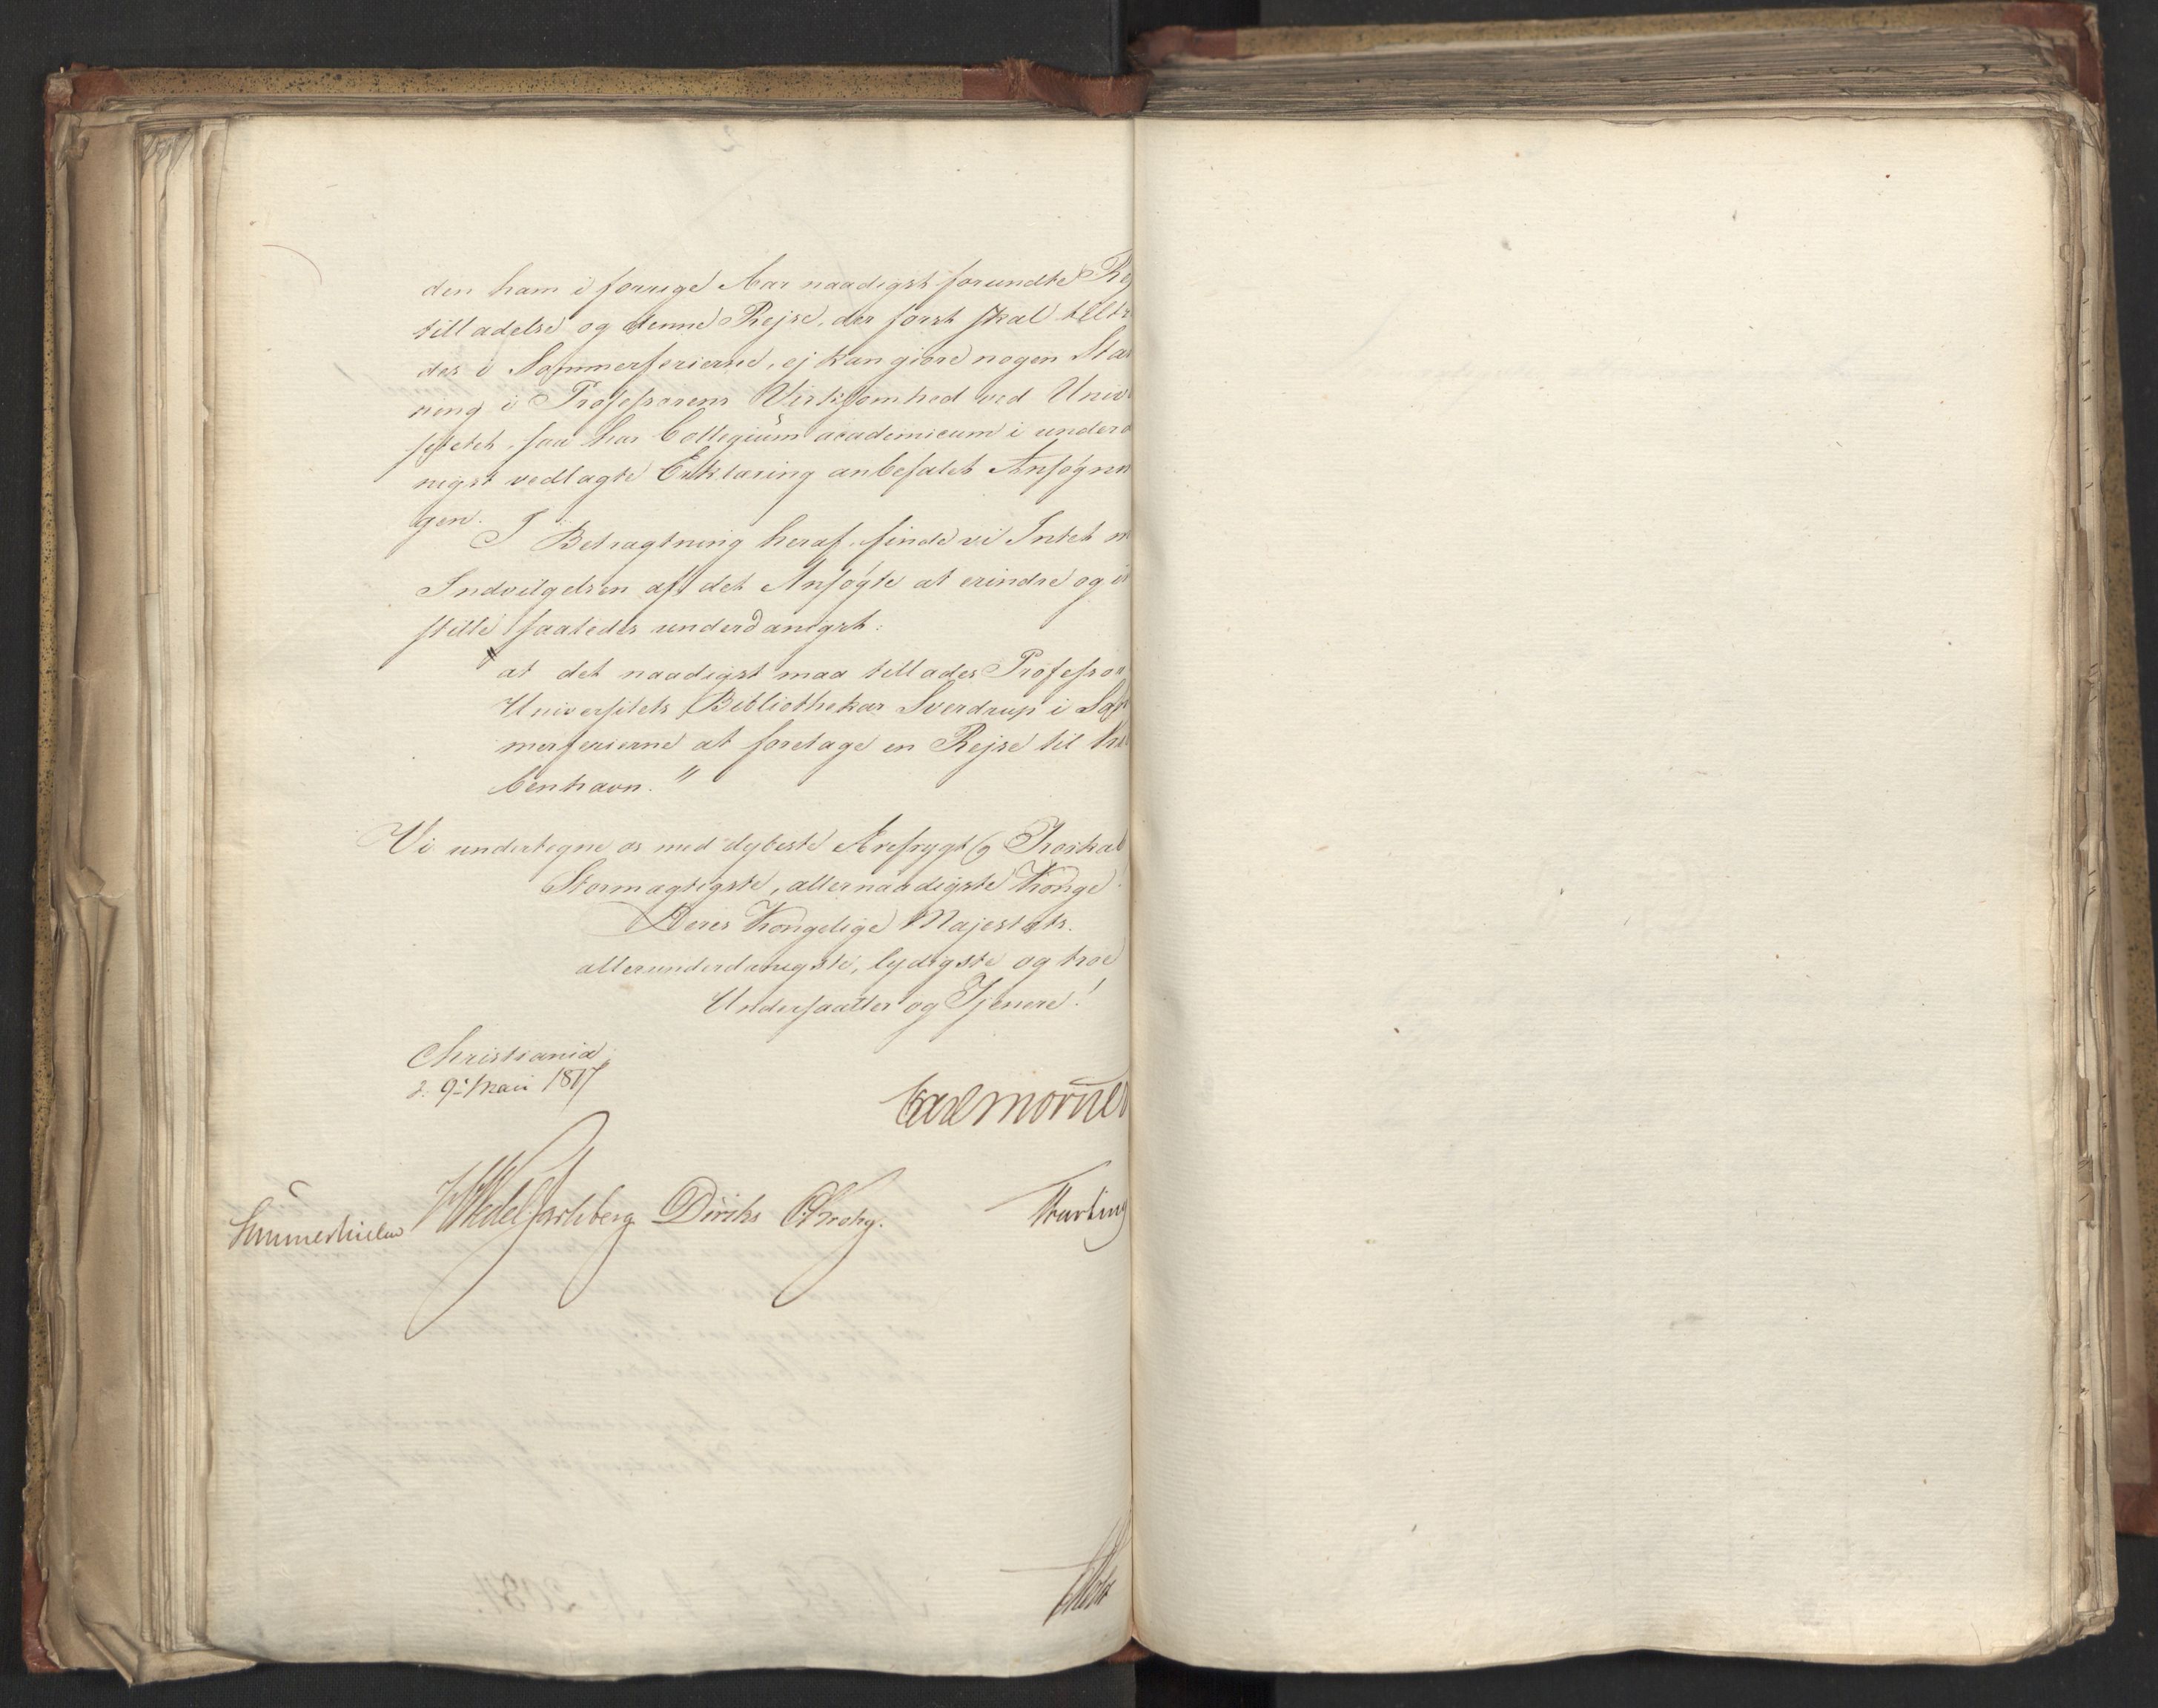 den ham i forrige Aar naadigst forundte Rej
tilladelse og denne Rejse, der først skal tiltr
des i Sommerferierne, ej kan giøre nogen Stør
ring i Professorens Virksomhed ved Univer
sitetet, saa har Collegium academicum i undera
nigst vedlagte Erklæring anbefalet Ansøgnin
gen.
I Betragtning heraf finde vi Intet m
Indvilgelsen af det Ansøgte at erindre og i
stille saaledes underdanigst:
"at det naadigst maa tillades Professor
Universitets Bibliothekar Sverdrup i Som
merferierne at foretage en Rejse til Kiø
benhavn."
Vi undertegne os med dybeste Ærefrygt og Troskab
Stormægtigste, allernaadigste Konge!
Deres Kongelige Majestæts.
allerunderdanigste, lydigste og troe
Undersaatter og Tjenere!
Christiania
d: 9de Maii 1817
Carl Mörner
Sommerhielm Wedel Jarlsberg Diriks CKrohg.
Hurting
Holst